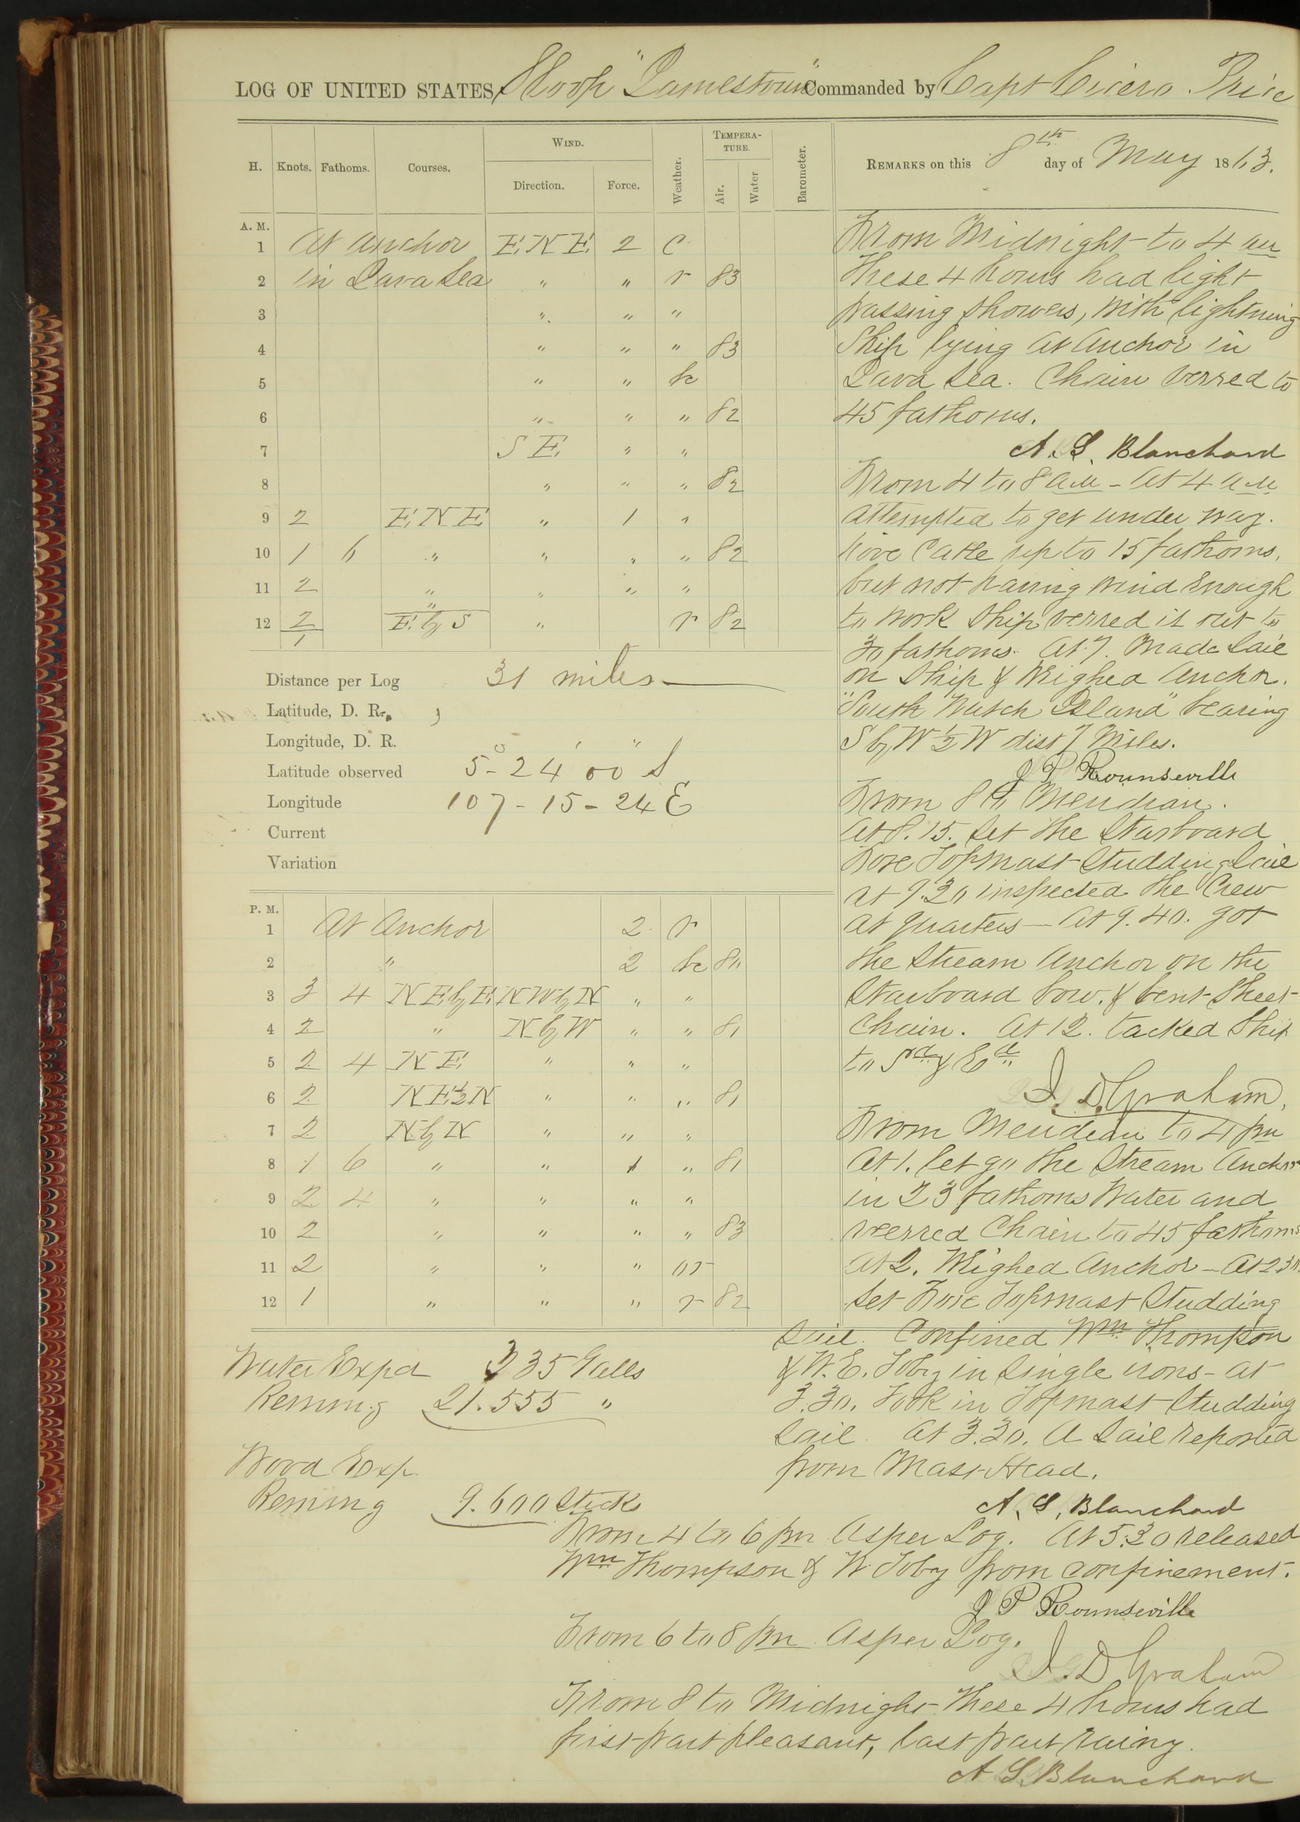 LOG OF UNITED STATES Sloop "Jamestown" Commanded by Capt Cicero Price
H. Knots. Fathoms. Courses. WIND. Direction. Force. Weather. TEMPERATURE. Air. Water. Barometer.
REMARKS on this 8th day of May 1863.
A. M.
1 At Anchor ENE 2 c
2 in Java Sea " " r 83
3 " " "
4 " " " 83
5 " " bc
6 " " " 82
7 SE " "
8 " " " 82
9 2 ENE " 1 "
10 1 6 " " " " 82
11 2 " " " "
12 2 " E by S " r 82
1
Distance per Log 31 miles
Latitude, D. R.
Longitude, D. R.
Latitude observed 5° - 24' 00" S
Longitude 107 - 15 - 24 E
Current
Variation
P. M.
1 At Anchor 2 r
2 " 2 bc 80
3 3 4 NE by E NW by N " "
4 2 " N by W " " 81
5 2 4 NE " " "
6 2 NE½N " " " 81
7 2 N by N " " "
8 1 6 " " 1 " 81
9 2 4 " " " "
10 2 " " " " 83
11 2 " " " or
12 1 " " " r 82
Water Expd 235 Galls
Reming 21.555 "
Wood Exp
Reming 9.600 Sticks
From Midnight to 4 am
These 4 hours had light
passing showers, with lightning
Ship lying at Anchor in
Java Sea. Chain veered to
45 fathoms.
A. S. Blanchard
From 4 to 8 am - At 4 am
attempted to get under way.
hove Cable up to 15 fathoms,
but not having wind Enough
to work Ship veered it out to
30 fathoms. At 7. Made Sail
on Ship & Weighed Anchor.
"South Watch Island" bearing
S by W ½ W dist 7 Miles.
J P Rounseville
From 8 to Meridian.
At 8.15. Set the Starboard
Fore Topmast Studding Sail
at 9.30 inspected the Crew
at quarters — At 9.40. got
the Stream Anchor on the
Starboard bow. & bent Sheet
Chain. At 12. tacked Ship
to Srd & Ed
J. D. Graham,
From Meridian to 4 pm
At 1. let go the Stream Anchor
in 23 fathoms Water and
veered Chain to 45 fathoms
At 2. Weighed Anchor - At 2 30.
Set Fore Topmast Studding
Sail. Confined Wm Thompson
& W. E. Toby in single irons - at
3.30. Took in Topmast Studding
Sail. At 3.30. A Sail reported
from Mast Head.
A. S. Blanchard
From 4 to 6 pm As per Log. At 5.30 released
Wm Thompson & W Toby from confinement.
J P Rounseville
From 6 to 8 pm As per Log.
J. D Graham
From 8 to Midnight These 4 hours had
first part pleasant, last part rainy.
A S Blanchard